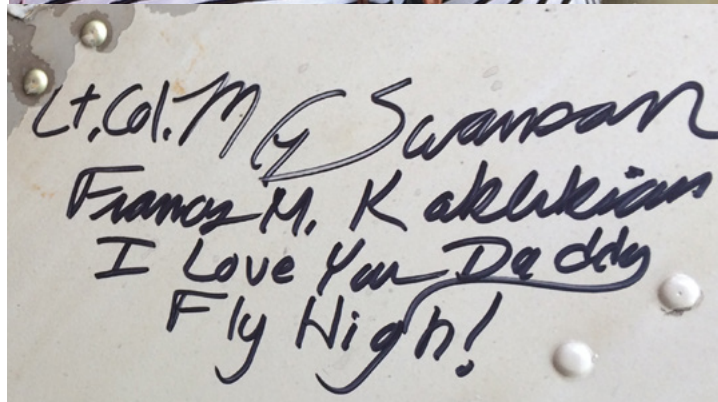 Lt. Col. M G Swanson
Frances M.
I Love You Daddy
Fly High!